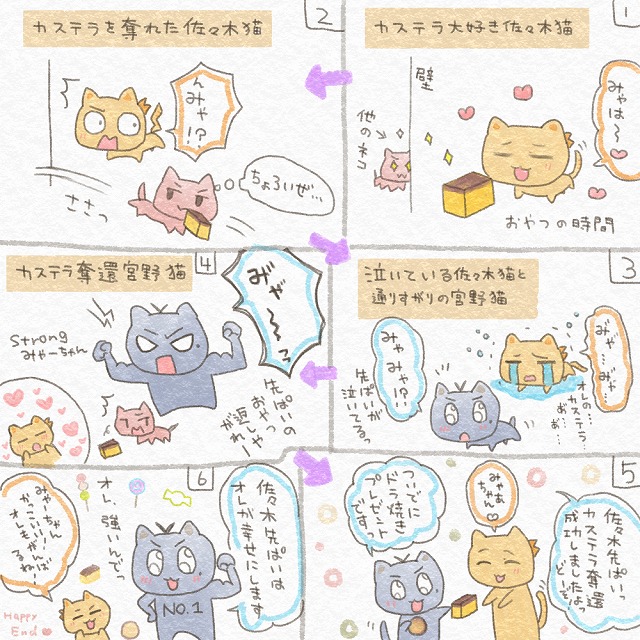 1
カステラ大好き佐々木猫
みゃは〜
壁
他のネコ
おやつの時間
2
カステラを奪れた佐々木猫
んみゃ!?
ちょろいぜ…
ささっ
3
泣いている佐々木猫と
通りすがりの宮野猫
みゃ…みゃ…
オレの…
カステラ…
みゃみゃ!?
先ぱいが
泣いてるっ
4
カステラ奪還宮野猫
みゃ〜〜っ
strong
みゃーちゃん
先ぱいの
おやつ
返しゃ
がれー
5
佐々木先ぱいっ
カステラ奪還
成功しましたよっ
どーぞ
みゃあ
ちゃん
ついでに
ドラ焼き
プレゼント
ですっ
6
佐々木先ぱいは
オレが幸せにします
オレ、強いんでっ
みゃーちゃん
NO.1
Happy
End